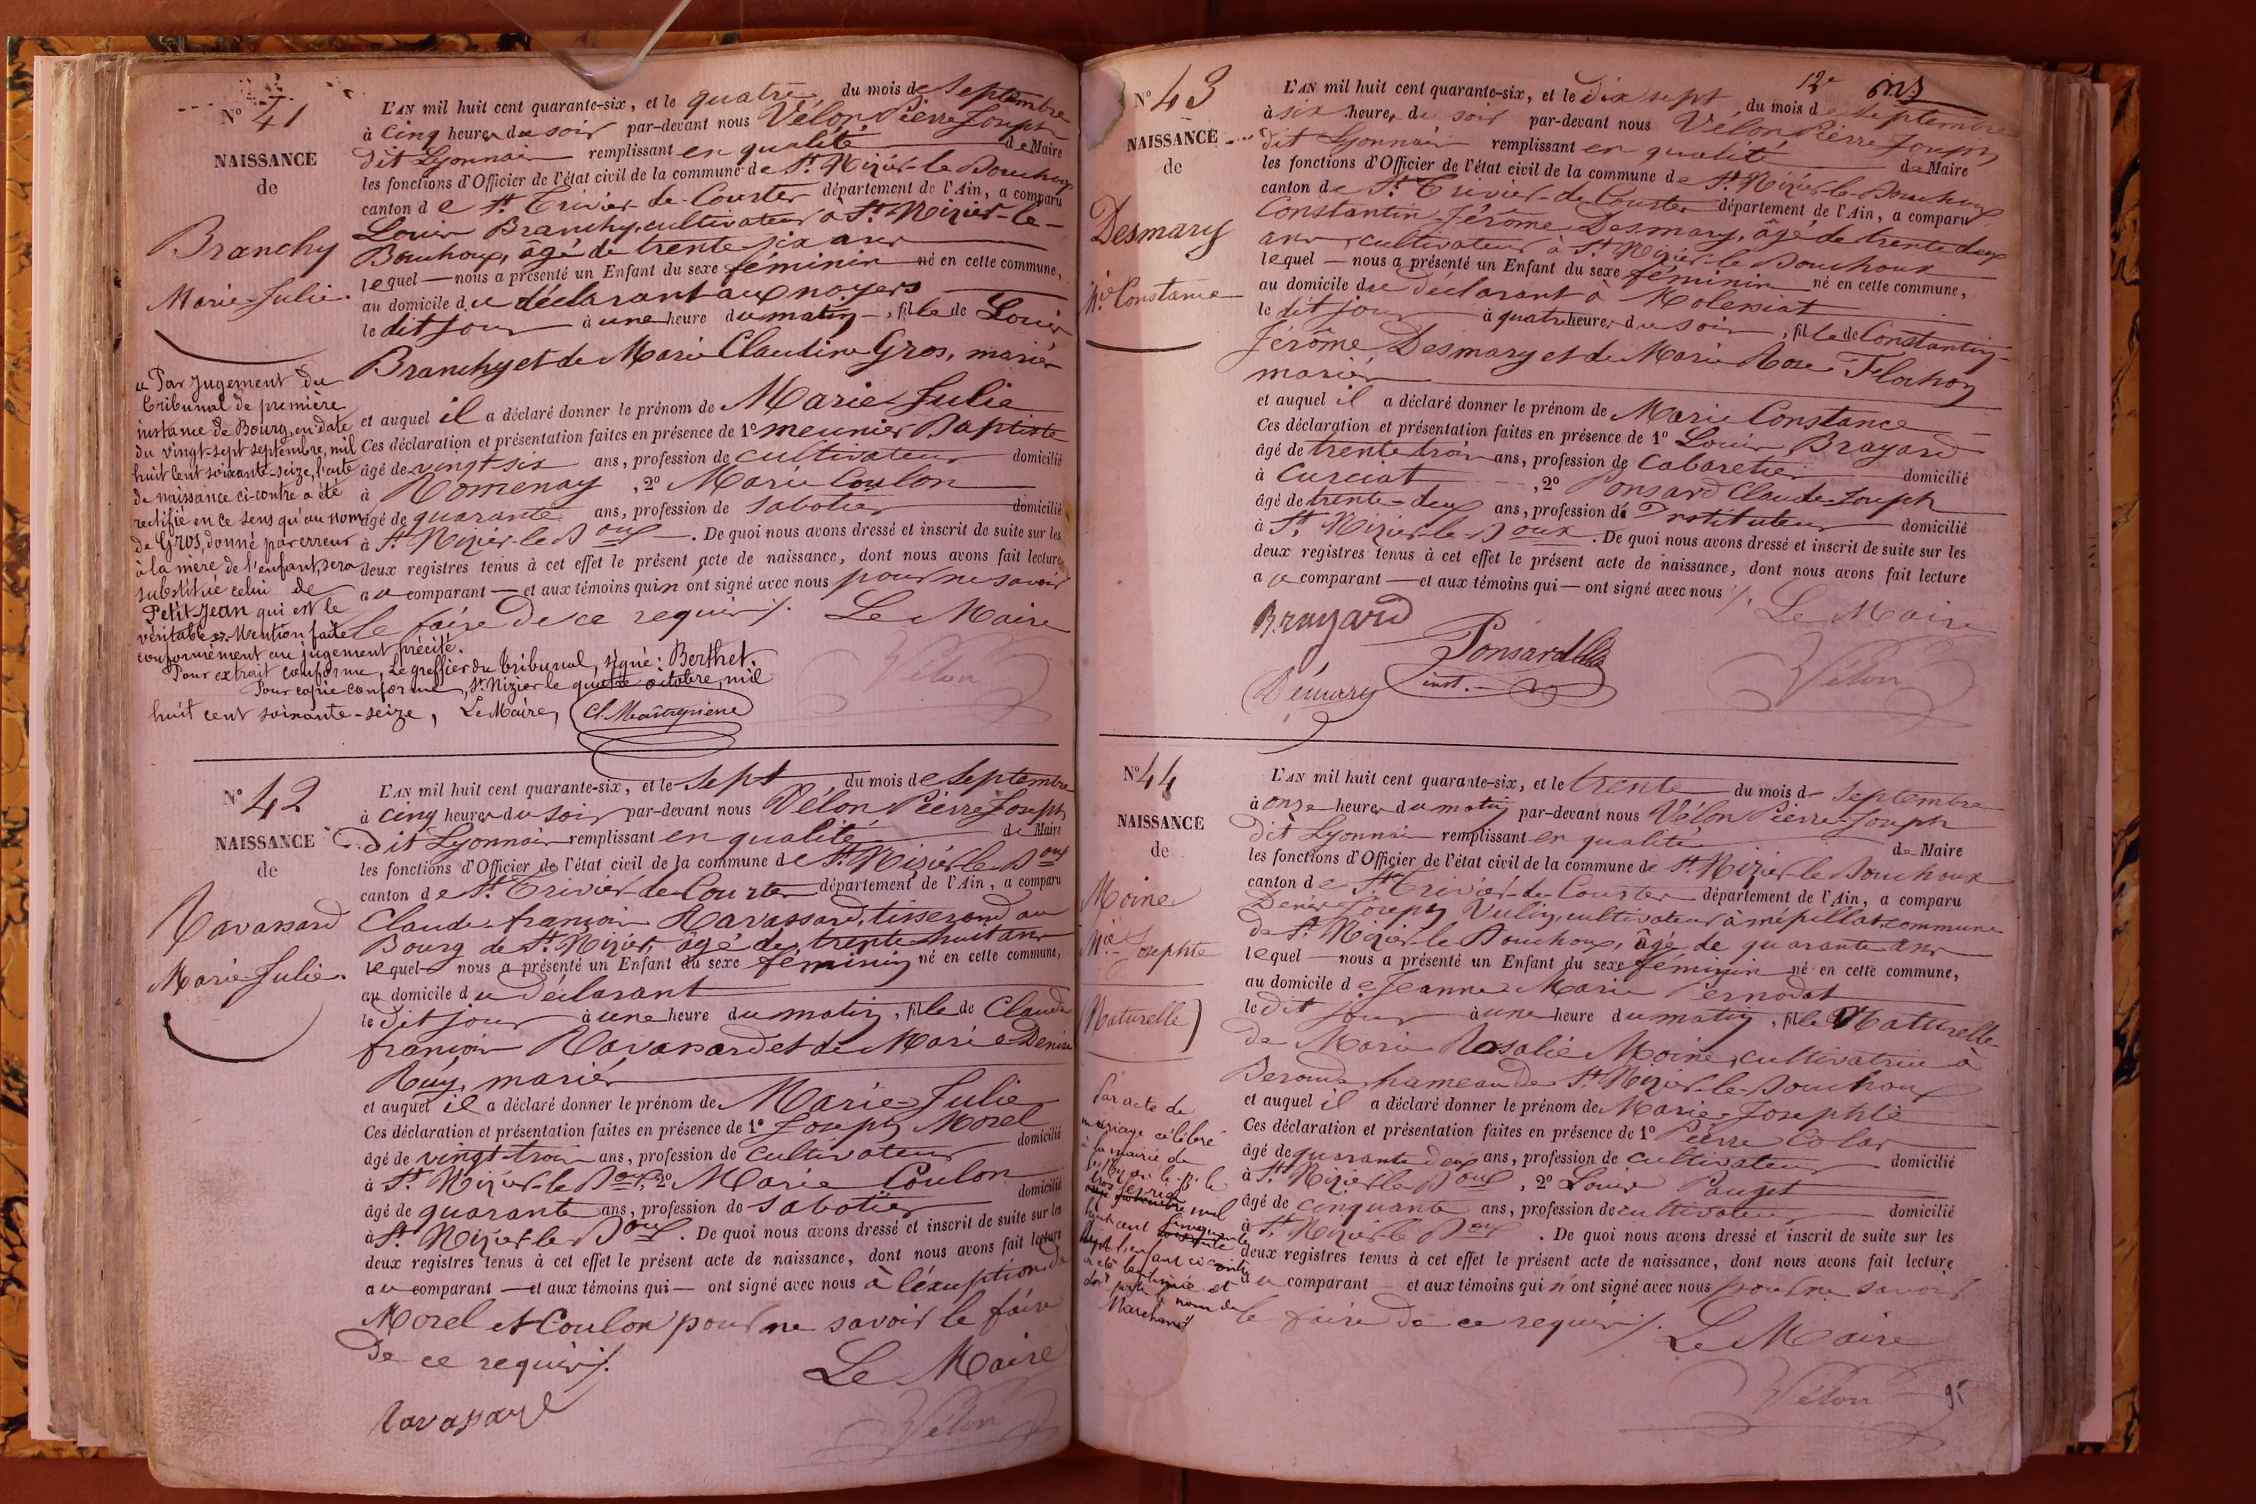 N° 41
NAISSANCE
de
Branchy
Marie-Julie.
L'AN mil huit cent quarante-six, et le quatre du mois de Septembre
à cinq heures du soir par-devant nous Vélon Pierre Joseph
dit Lyonnais remplissant en qualité de Maire
les fonctions d'Officier de l'état civil de la commune de St. Nizier-le-Bouchoux
canton de St. Trivier-de-Courtes département de l'Ain, a comparu
Louis Branchy, cultivateur à St. Nizier-le-
Bouchoux, âgé de trente-six ans
lequel — nous a présenté un Enfant du sexe féminin né en cette commune,
au domicile du déclarant aux noyers
le dit jour à une heure du matin, fille de Louis
Branchy et de Marie Claudine Gros, mariés
et auquel il a déclaré donner le prénom de Marie-Julie
Ces déclaration et présentation faites en présence de 1° meunier Baptiste
âgé de vingt-six ans, profession de cultivateur domicilié
à Romenay, 2° Marie Coulon
âgé de quarante ans, profession de sabotier domicilié
à St. Nizier-le-Boux. De quoi nous avons dressé et inscrit de suite sur les
deux registres tenus à cet effet le présent acte de naissance, dont nous avons fait lecture
au comparant — et aux témoins qui n'ont signé avec nous pour ne savoir
le faire de ce requis ./. Le Maire
Vélon
« Par jugement du
tribunal de première
instance de Bourg, en date
du vingt-sept septembre, mil
huit cent soixante-seize, l'acte
de naissance ci-contre a été
rectifié en ce sens qu'au nom
de Gros, donné par erreur
à la mère de l'enfant, sera
substitué celui de
Petit-Jean qui est le
véritable ». Mention faite
conformément au jugement précité.
Pour extrait conforme, Le greffier du tribunal, signé: Berthet.
Pour copie conforme, St. Nizier le quatre octobre, mil
huit cent soixante-seize, Le Maire,
N° 42
NAISSANCE
de
Ravassard
Marie-Julie.
L'AN mil huit cent quarante-six, et le sept du mois de Septembre
à cinq heures du soir par-devant nous Vélon Pierre Joseph
dit Lyonnais remplissant en qualité de Maire
les fonctions d'Officier de l'état civil de la commune de St. Nizier-le-Boux
canton de St. Trivier-de-Courtes département de l'Ain, a comparu
Claude-françois Ravassard, tisserand au
Bourg de St. Nizier, âgé de trente-huit ans
lequel nous a présenté un Enfant du sexe féminin né en cette commune,
au domicile du déclarant
le dit jour à une heure du matin, fille de Claude
françois Ravassard et de Marie-Denise
mariés
et auquel il a déclaré donner le prénom de Marie-Julie
Ces déclaration et présentation faites en présence de 1° Joseph Morel
âgé de vingt-trois ans, profession de cultivateur domicilié
à St. Nizier-le-Boux, 2° Marie Coulon
âgé de quarante ans, profession de sabotier domicilié
à St. Nizier-le-Boux. De quoi nous avons dressé et inscrit de suite sur les
deux registres tenus à cet effet le présent acte de naissance, dont nous avons fait lecture
au comparant — et aux témoins qui — ont signé avec nous à l'éxuption de
Morel et Coulon pour ne savoir le faire
de ce requis ./. Le Maire
Ravassard Vélon
12e
N° 43
NAISSANCE
de
Desmary
Mie Constance
L'AN mil huit cent quarante-six, et le dix sept du mois de septembre
à six heures du soir par-devant nous Vélon Pierre Joseph
dit Lyonnais remplissant en qualité de Maire
les fonctions d'Officier de l'état civil de la commune de St. Nizier-le-Bouchoux
canton de St. Trivier-de-Courtes département de l'Ain, a comparu
Constantin-Jérôme Desmary, âgé de trente deux
ans, cultivateur à St. Nizier-le-Bouchoux
lequel — nous a présenté un Enfant du sexe féminin né en cette commune,
au domicile du déclarant à Molensiat
le dit jour à quatre heures du soir, fille de Constantin-
Jérôme Desmary et de Marie Rose Flochon
mariés
et auquel il a déclaré donner le prénom de Marie Constance
Ces déclaration et présentation faites en présence de 1° Louis Brayard
âgé de trente trois ans, profession de Cabaretier domicilié
à Curciat, 2° Ponsard Claude-Joseph
âgé de trente-deux ans, profession de Instituteur domicilié
à St. Nizier-le-Boux. De quoi nous avons dressé et inscrit de suite sur les
deux registres tenus à cet effet le présent acte de naissance, dont nous avons fait lecture
au comparant — et aux témoins qui — ont signé avec nous ./. Le Maire
Brayard
Ponsard
inst. Vélon
N° 44
NAISSANCE
de
Moine
Mie Josephte
Naturelle
L'AN mil huit cent quarante-six, et le trente du mois de septembre
à onze heures du matin par-devant nous Vélon Pierre-Joseph
dit Lyonnais remplissant en qualité de Maire
les fonctions d'Officier de l'état civil de la commune de St. Nizier-le-Bouchoux
canton de St. Trivier-de-Courtes département de l'Ain, a comparu
Denis Joseph Vulin, cultivateur à mépillat, commune
de St. Nizier-le-Bouchoux, âgé de quarante ans
lequel — nous a présenté un Enfant du sexe féminin né en cette commune,
au domicile de Jeanne-Marie Pernodat
le dit jour à une heure du matin, fille Naturelle
de Marie Rosalie Moine, cultivatrice à
hameau de St. Nizier-le-Bouchoux
et auquel il a déclaré donner le prénom de Marie-Josephte
Ces déclaration et présentation faites en présence de 1° Pierre Colas
âgé de quarante deux ans, profession de cultivateur domicilié
à St. Nizier-le-Boux, 2° Louis Pauget
âgé de cinquante ans, profession de cultivateur domicilié
à St. Nizier-le-Boux. De quoi nous avons dressé et inscrit de suite sur les
deux registres tenus à cet effet le présent acte de naissance, dont nous avons fait lecture
au comparant et aux témoins qui n'ont signé avec nous pour ne savoir
le faire de ce requis ./. Le Maire
Vélon
Par acte de
mariage célébré
à la mairie de
St. Nizier-le-B. le
mil
huit cent cinquante
l'enfant ci-contre
a été légitimée et
doit porter le nom de
Marchand
95